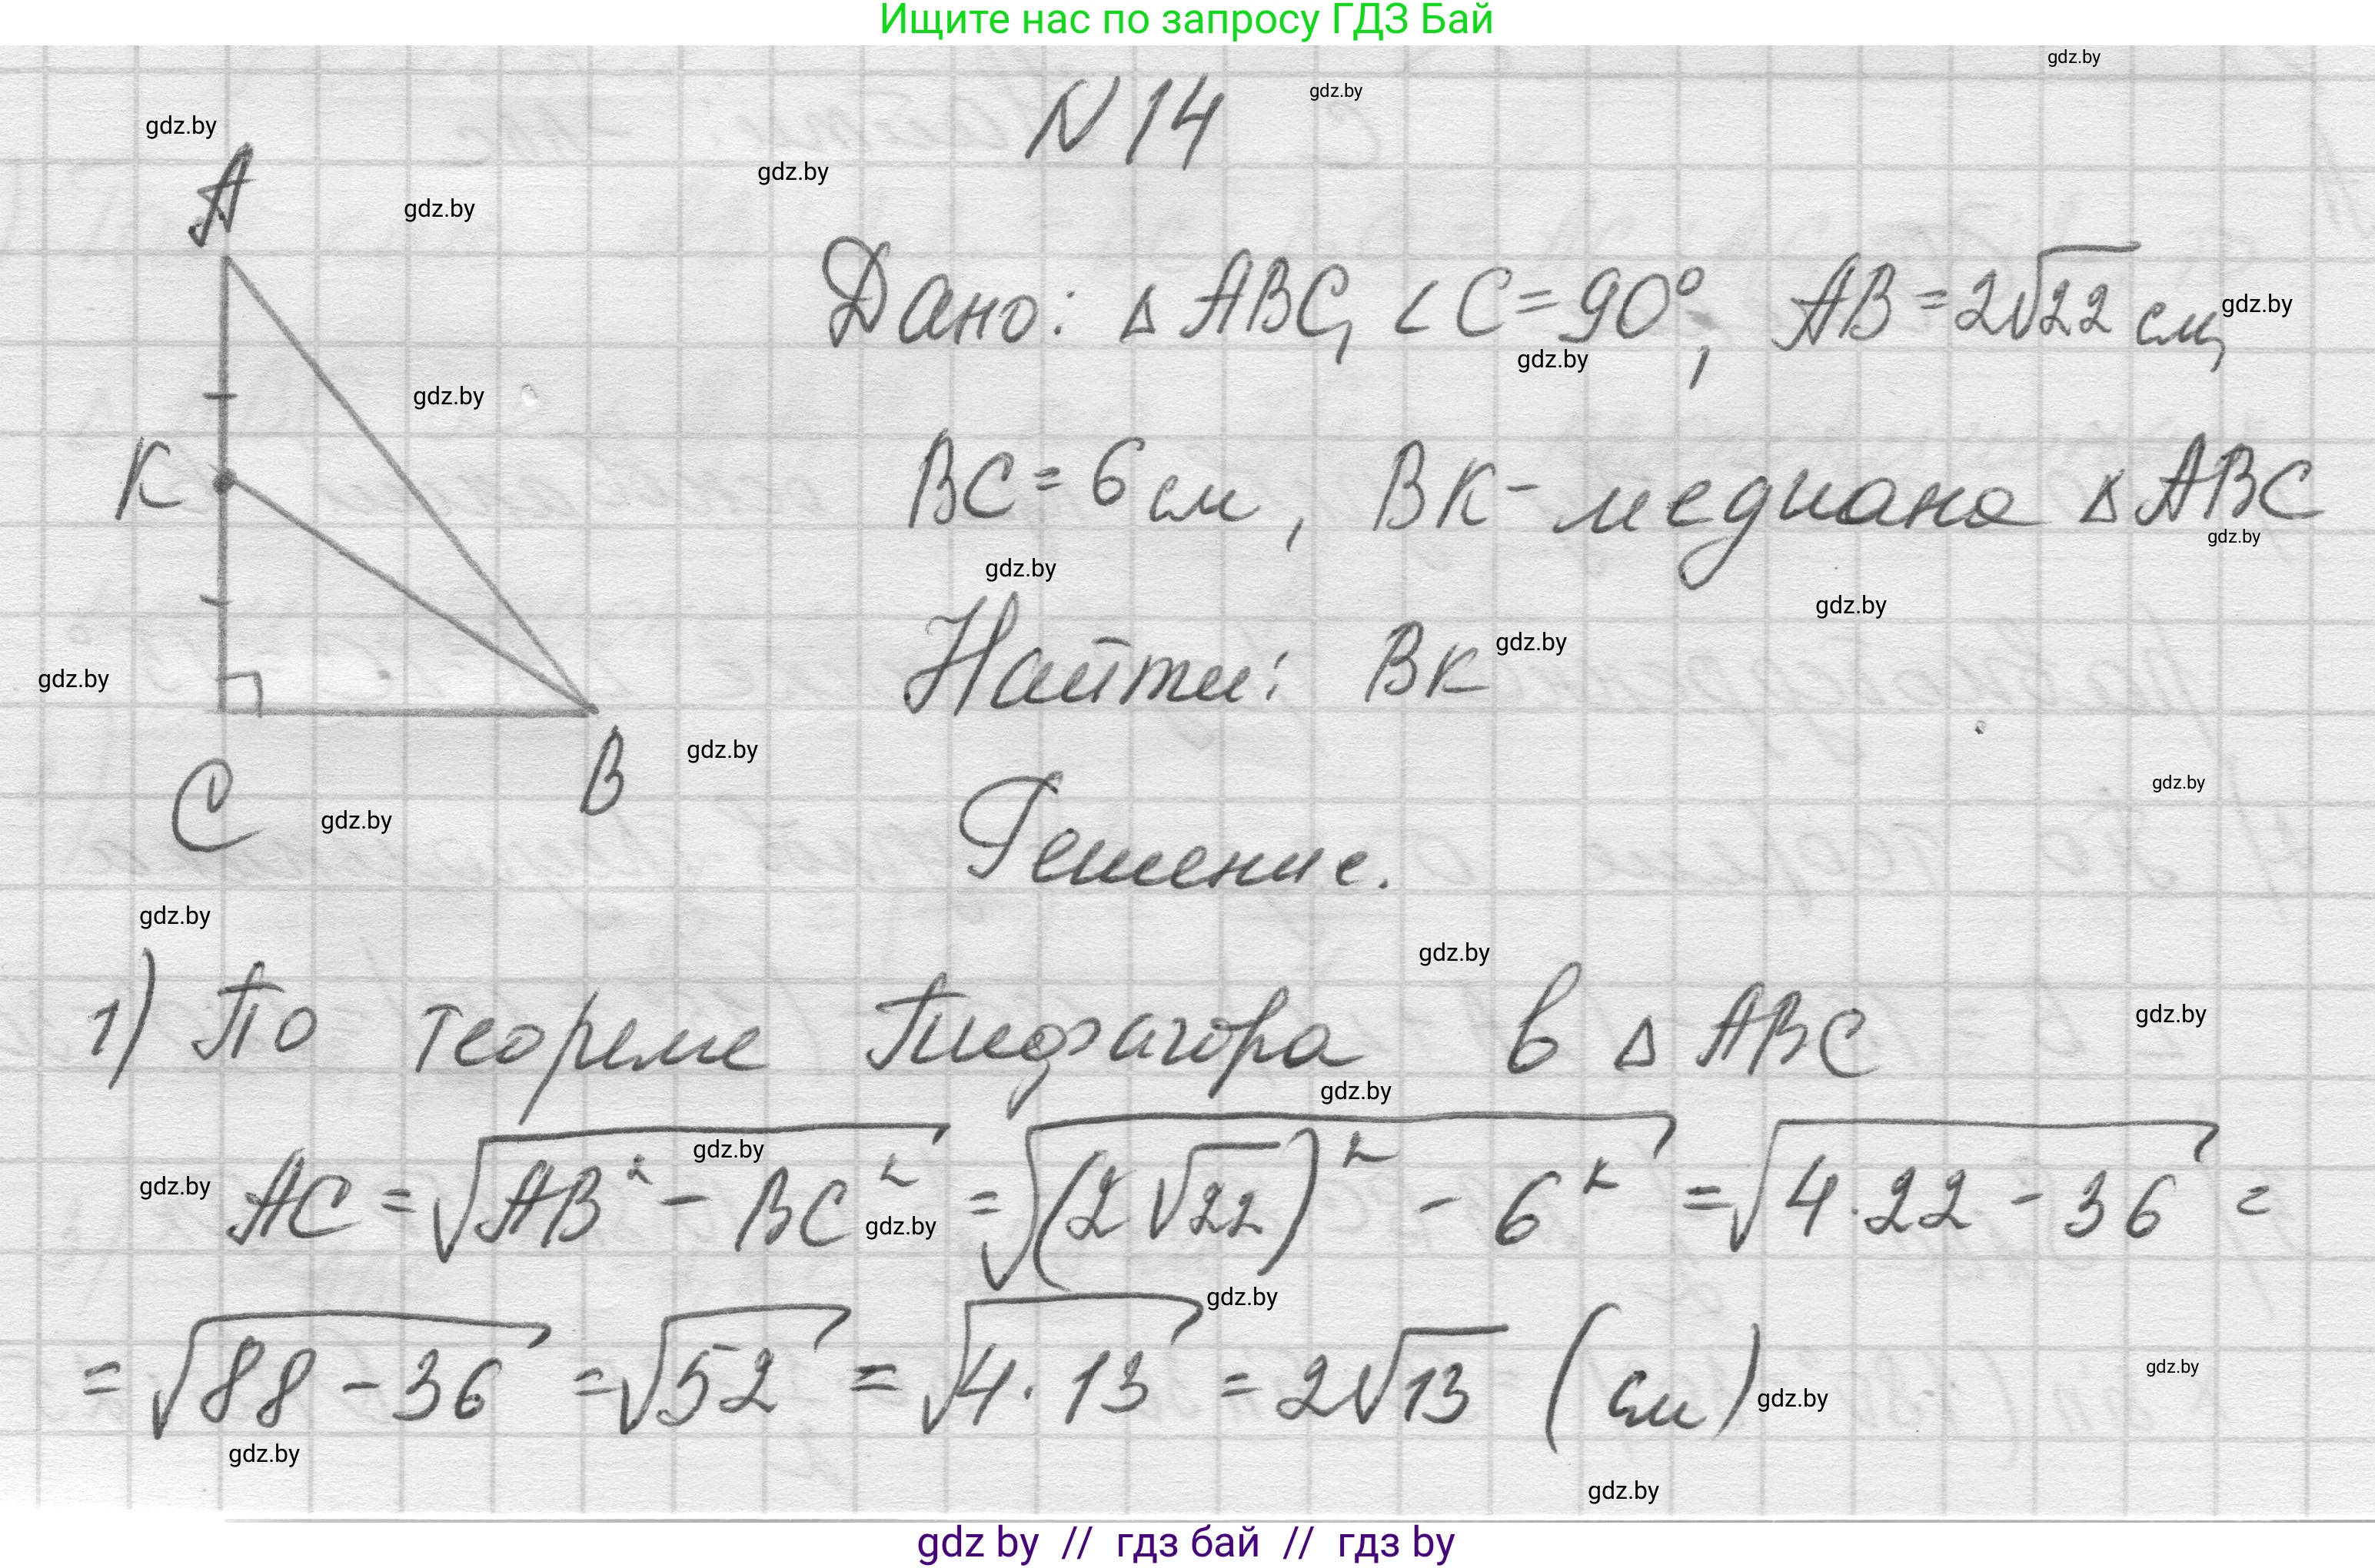 Ищите нас по запросу ГДЗ Бай
gdz.by
gdz.by
N 14
gdz.by
gdz.by
A
gdz.by
Дано: Δ ABC, ∠C = 90°, AB = 2√22 см,
gdz.by
gdz.by
gdz.by
K
BC = 6 см, BK - медиана Δ ABC
gdz.by
gdz.by
gdz.by
Найти: BK
gdz.by
gdz.by
C
B
gdz.by
gdz.by
gdz.by
Решение.
gdz.by
gdz.by
1) По теореме Пифагора в Δ ABC
gdz.by
gdz.by
gdz.by
AC = √(AB² - BC²) = √((2√22)² - 6²) = √(4·22 - 36) =
gdz.by
gdz.by
gdz.by
= √(88 - 36) = √52 = √(4·13) = 2√13 (см)
gdz.by
gdz.by
gdz.by
gdz.by
gdz by // гдз бай // гдз by